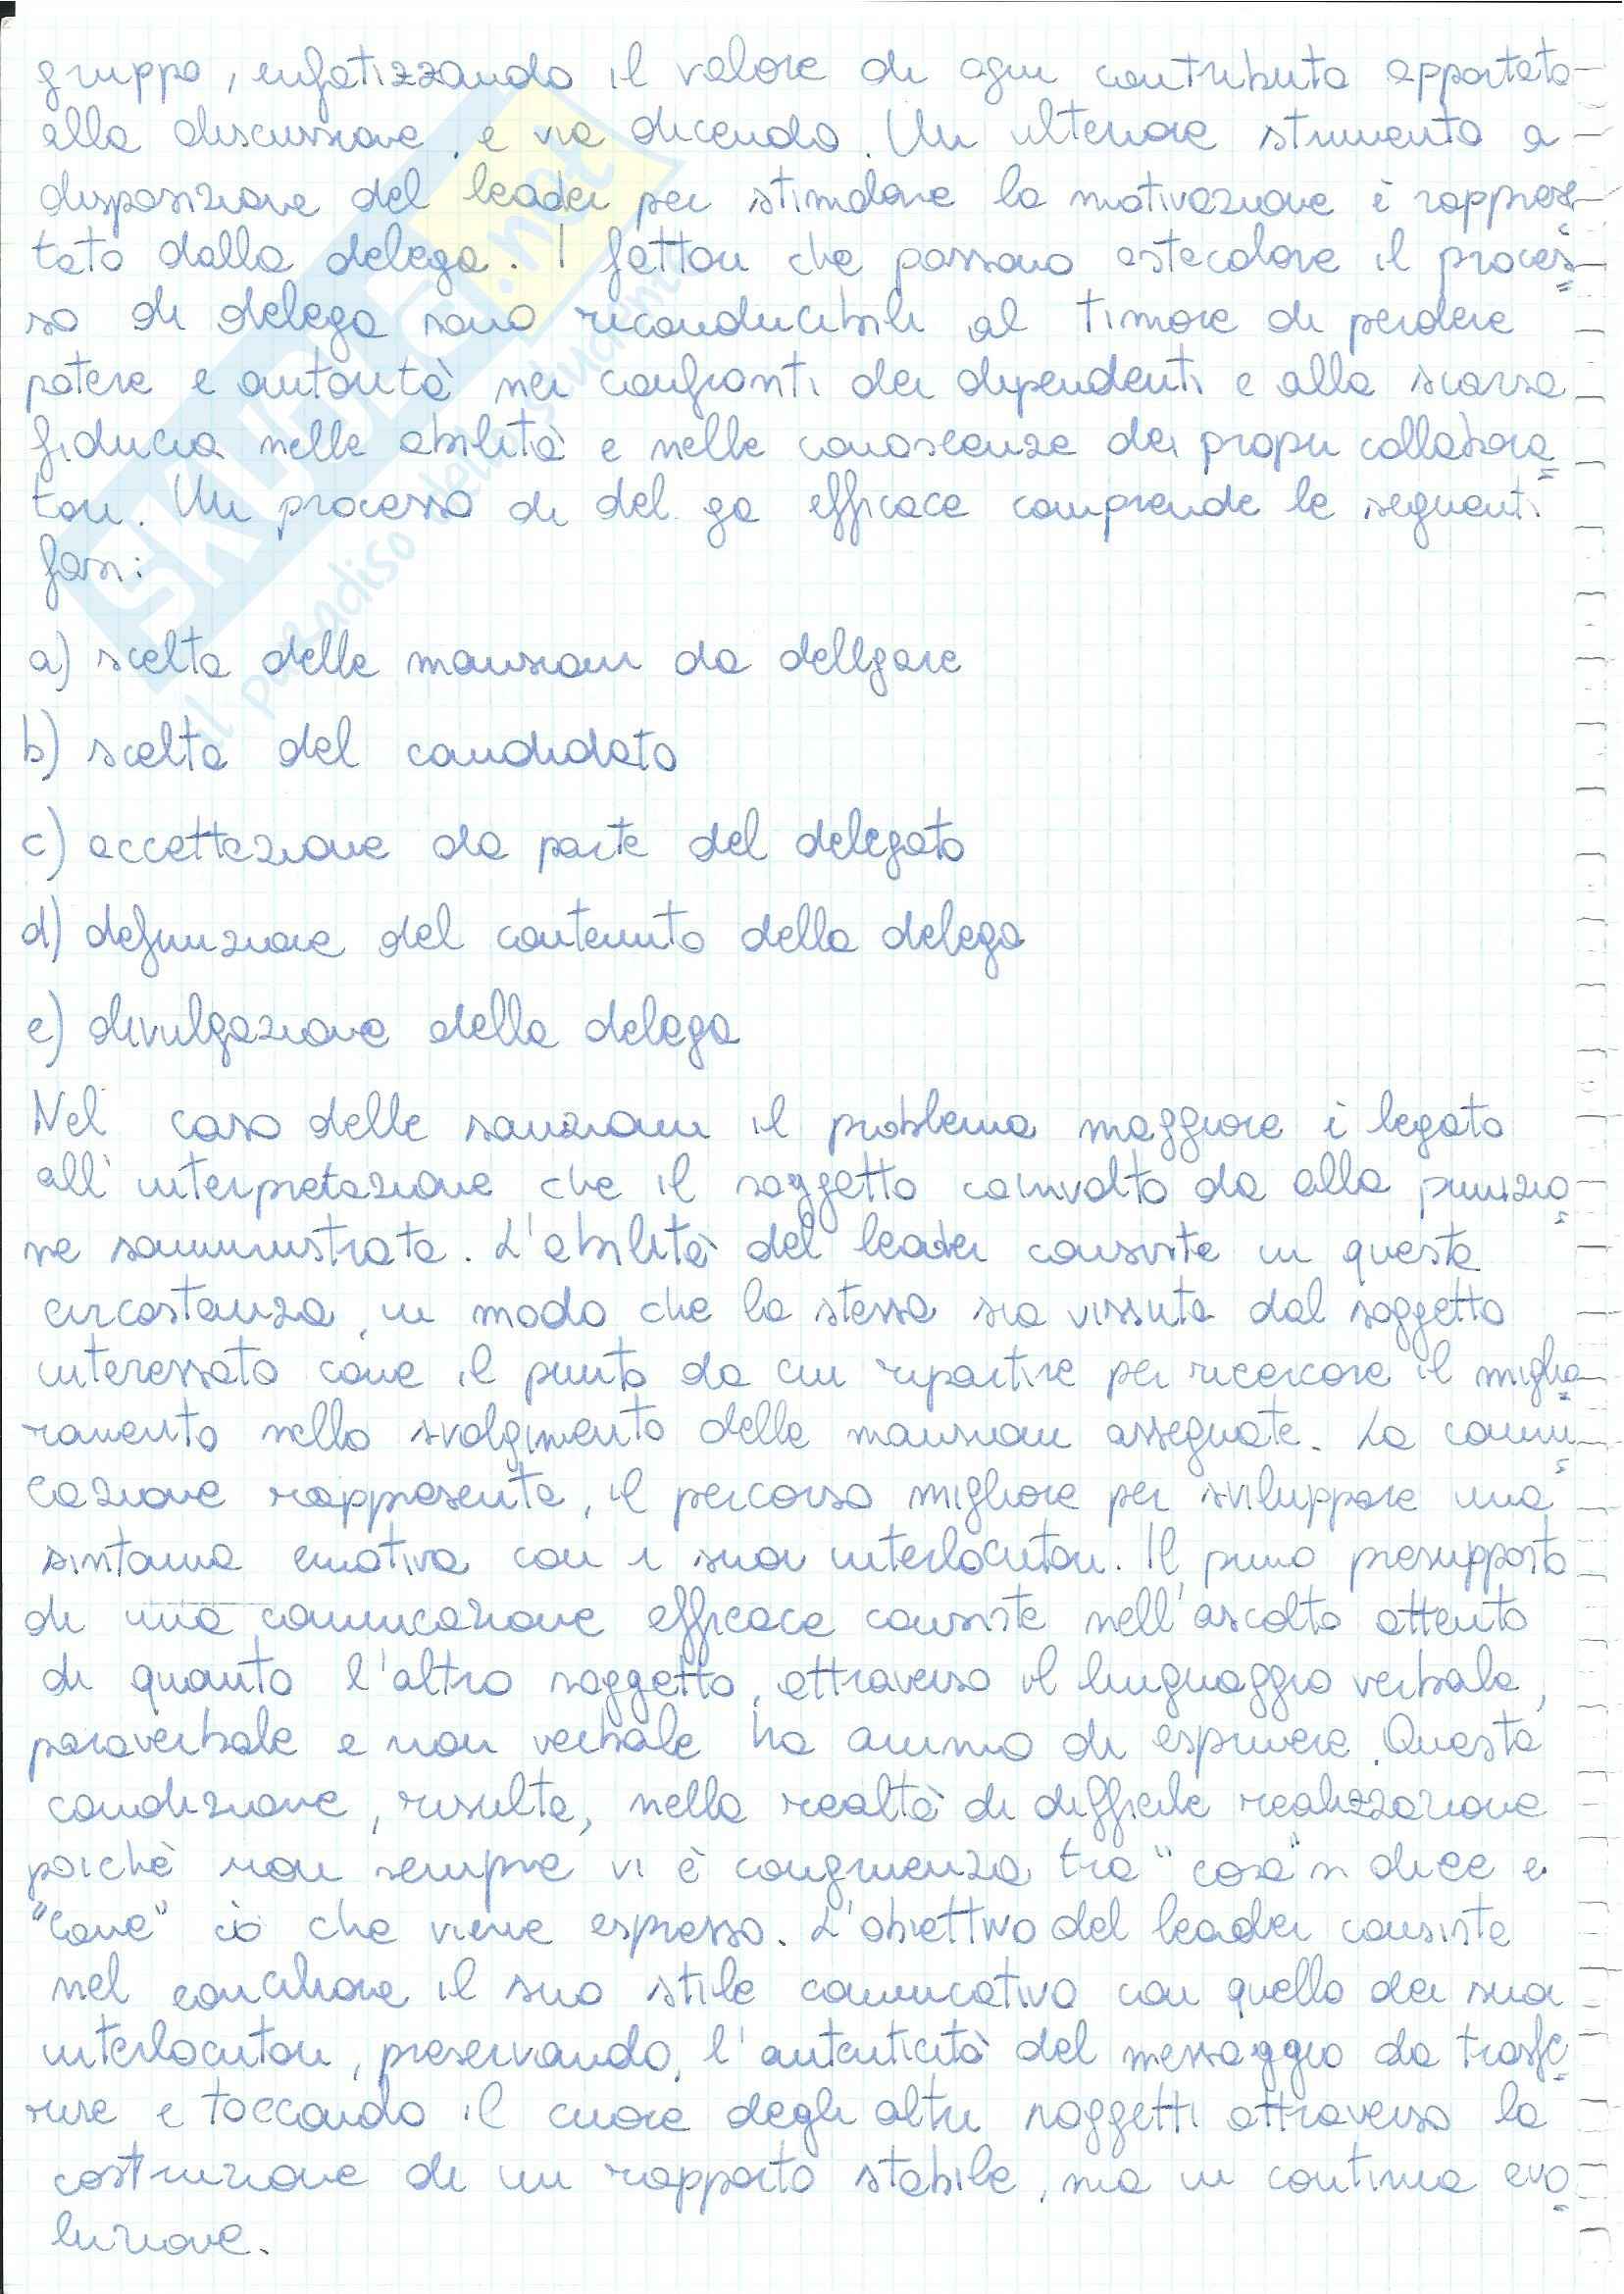 gruppo, enfatizzando il valore di ogni contributo apportato
alla discussione, e via dicendo. Un ulteriore strumento a
disposizione del leader per stimolare la motivazione è rappresen
tato dalla delega. I fattori che possono ostacolare il proces
so di delega sono riconducibili al timore di perdere
potere e autorità nei confronti dei dipendenti e alla scarsa
fiducia nelle abilità e nelle conoscenze dei propri collabora
tori. Un processo di del ga efficace comprende le seguenti
fasi:
a) scelta delle mansioni da delegare
b) scelta del candidato
c) accettazione da parte del delegato
d) definizione del contenuto della delega
e) divulgazione della delega
Nel caso delle sanzioni il problema maggiore è legato
all'interpretazione che il soggetto coinvolto da alla punizio
ne somministrata. L'abilità del leader consiste in questa
circostanza, in modo che la stessa sia vissuta dal soggetto
interessato come il punto da cui ripartire per ricercare il miglio
ramento nello svolgimento delle mansioni assegnate. La comuni
cazione rappresenta, il percorso migliore per sviluppare una
sintonia emotiva con i suoi interlocutori. Il primo presupposto
di una comunicazione efficace consiste nell'ascolto attento
di quanto l'altro soggetto, attraverso il linguaggio verbale,
paraverbale e non verbale ha animo di esprimere. Questa
condizione, risulta, nella realtà di difficile realizzazione
poichè non sempre vi è congruenza tra "cosa" si dice e
"come" ciò che viene espresso. L'obiettivo del leader consiste
nel conciliare il suo stile comunicativo con quello dei suoi
interlocutori, preservando, l'autenticità del messaggio da trasfe
rire e toccando il cuore degli altri soggetti attraverso la
costruzione di un rapporto stabile, ma in continua evo
luzione.
SKUOLA.net
il paradiso dello studente